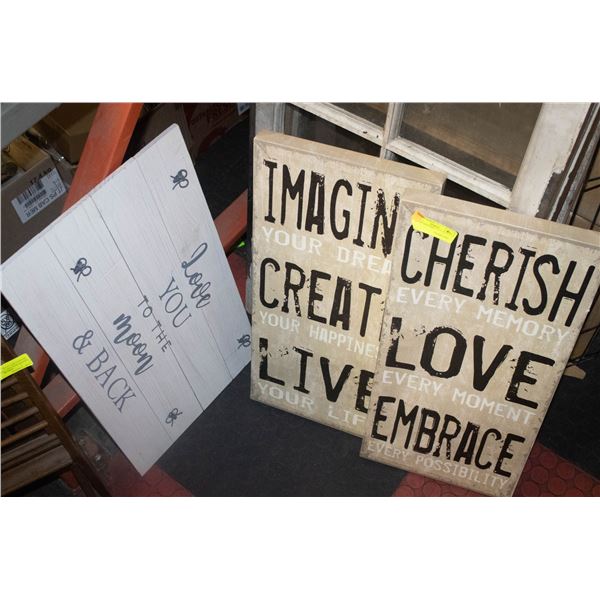 love
YOU
TO THE
moon
& BACK
IMAGIN
YOUR DREA
CREAT
YOUR HAPPINES
LIVE
YOUR LIF
CHERISH
EVERY MEMORY
LOVE
EVERY MOMENT
EMBRACE
EVERY POSSIBILITY